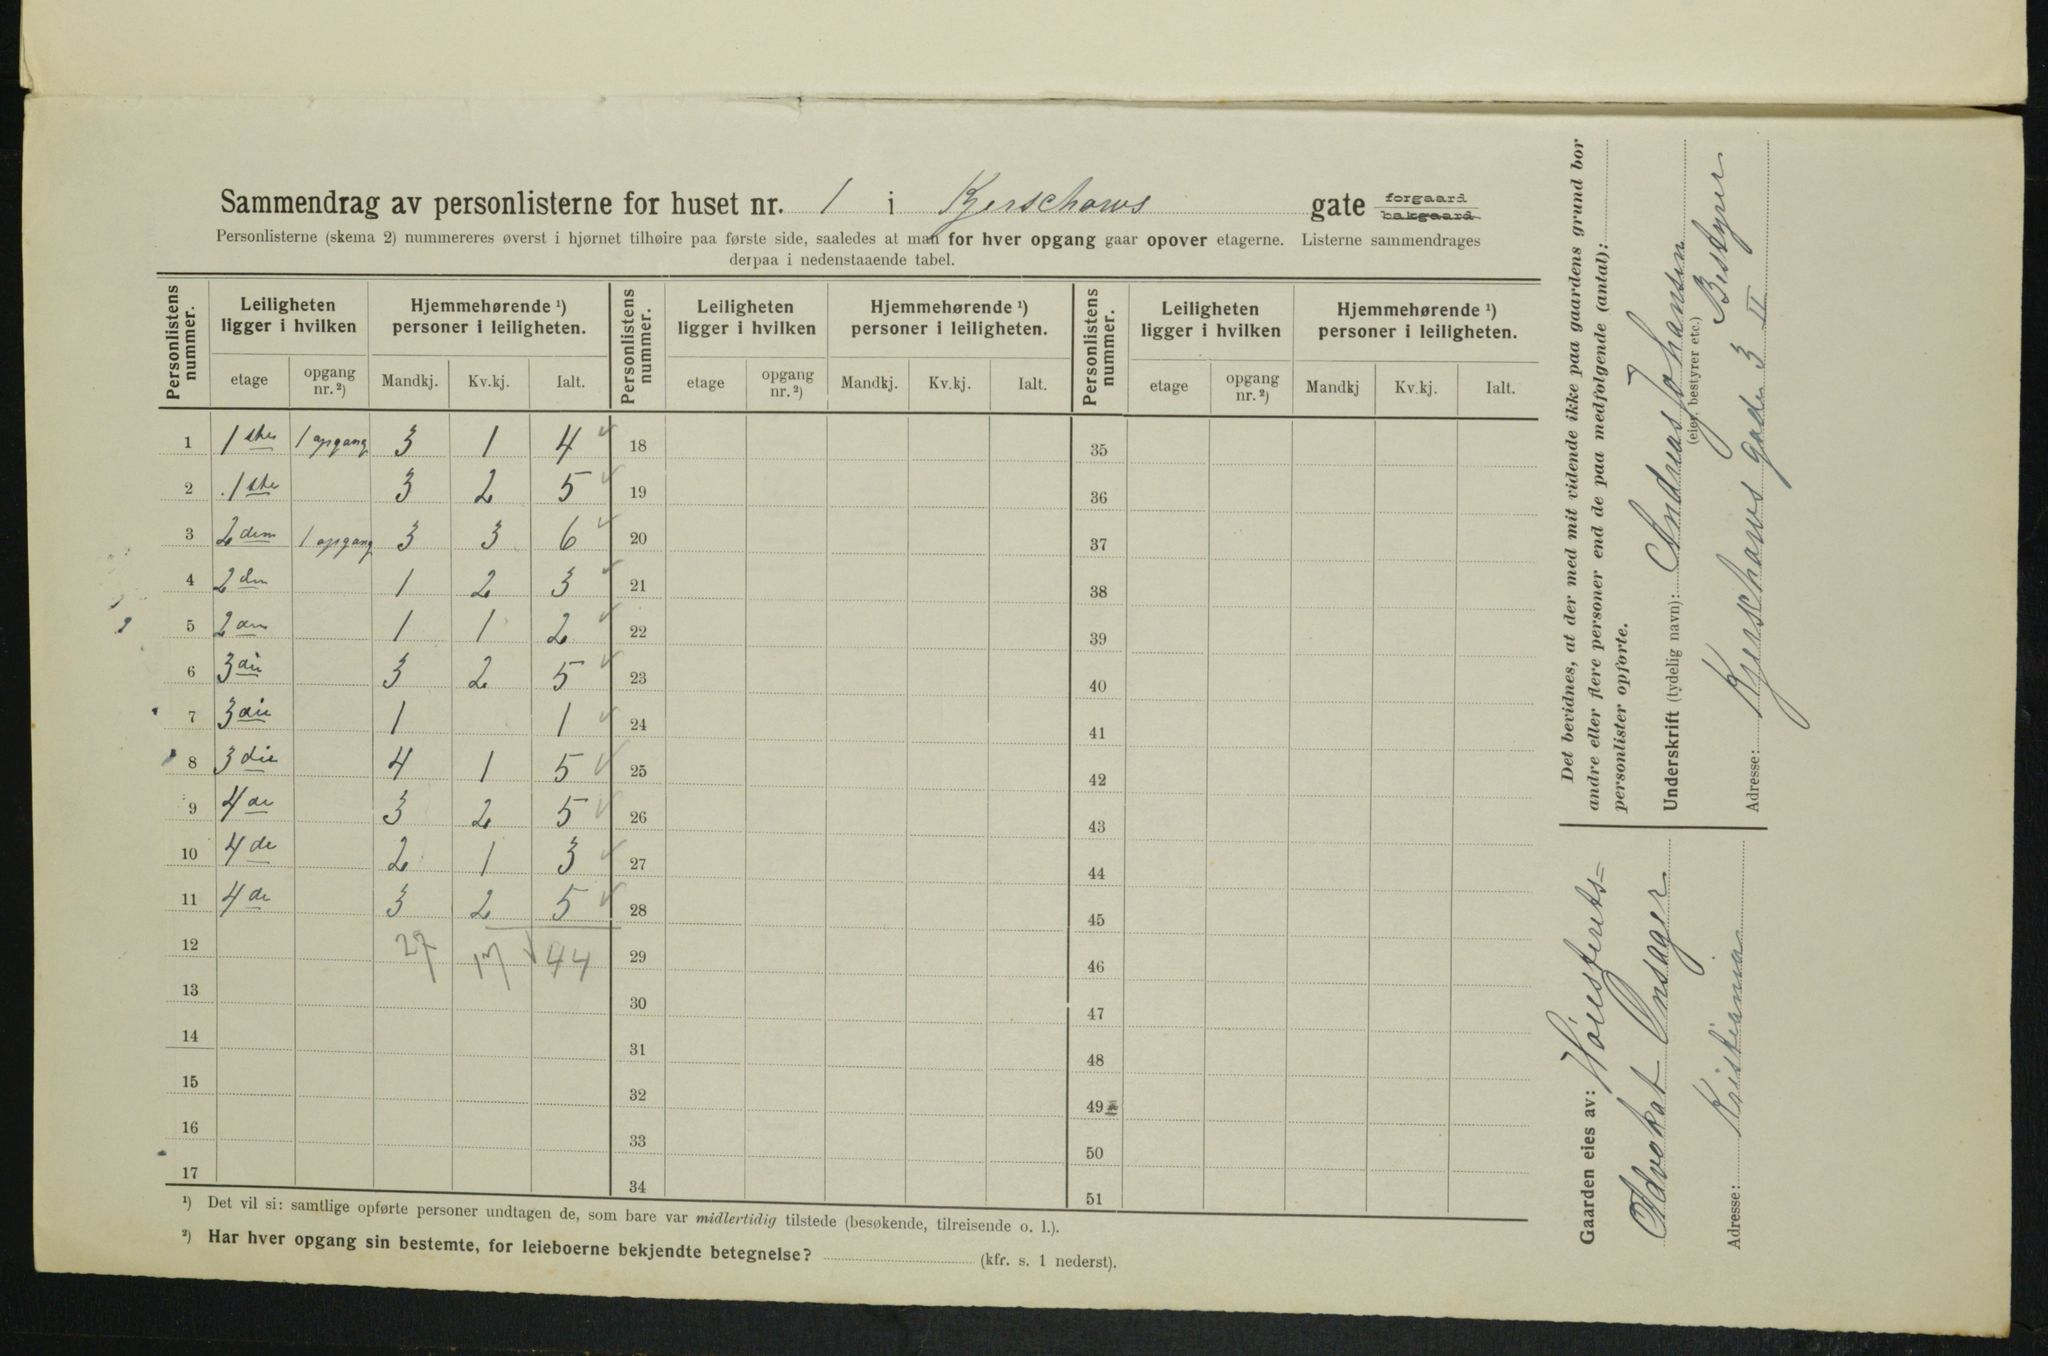 Sammendrag av personlisterne for huset nr. 1 i Kjerschows gate forgaard ~~bakgaard~~
Personlisterne (skema 2) nummereres øverst i hjørnet tilhøire paa første side, saaledes at man for hver opgang gaar opover etagerne. Listerne sammendrages
derpaa i nedenstaaende tabel.
Personlistens nummer. Leiligheten ligger i hvilken Hjemmehørende ¹) personer i leiligheten. Personlistens nummer. Leiligheten ligger i hvilken Hjemmehørende ¹) personer i leiligheten. Personlistens nummer. Leiligheten ligger i hvilken Hjemmehørende ¹) personer i leiligheten.
etage opgang nr. ²) Mandkj. Kv.kj. Ialt. etage opgang nr. ²) Mandkj. Kv.kj. Ialt. etage opgang nr. ²) Mandkj Kv.kj. Ialt.
1 1ste 1 opgang 3 1 4 ✓ 18 35
2 1ste 3 2 5 ✓ 19 36
3 2den 1 opgang 3 3 6 ✓ 20 37
4 2den 1 2 3 ✓ 21 38
5 2den 1 1 2 ✓ 22 39
6 3die 3 2 5 ✓ 23 40
7 3die 1 1 ✓ 24 41
8 3die 4 1 5 ✓ 25 42
9 4de 3 2 5 ✓ 26 43
10 4de 2 1 3 ✓ 27 44
11 4de 3 2 5 ✓ 28 45
12 27 17 44 29 46
13 30 47
14 31 48
15 32 49
16 33 50
17 34 51
¹) Det vil si: samtlige opførte personer undtagen de, som bare var midlertidig tilstede (besøkende, tilreisende o. l.).
²) Har hver opgang sin bestemte, for leieboerne bekjendte betegnelse? (kfr. s. 1 nederst).
Det bevidnes, at der med mit vidende ikke paa gaardens grund bor
andre eller flere personer end de paa medfølgende (antal):
personlister opførte.
Underskrift (tydelig navn): Andreas Johansen
(eier, bestyrer etc.) Bestyrer
Adresse: Kjerschows gade 3 II
Gaarden eies av: Höiesterets=
Advokat Onsager
Adresse: Kristiania